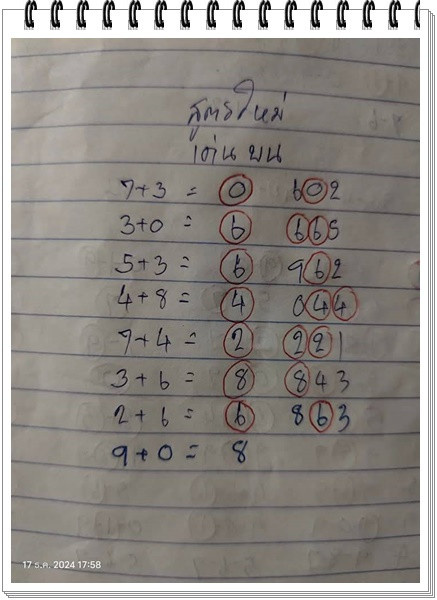 สูตรใหม่
เด่น บน
7+3 = 0 602
3+0 = 6 665
5+3 = 6 962
4+8 = 4 044
7+4 = 2 221
3+6 = 8 843
2+6 = 6 863
9+0 = 8
17 ธ.ค. 2024 17:58